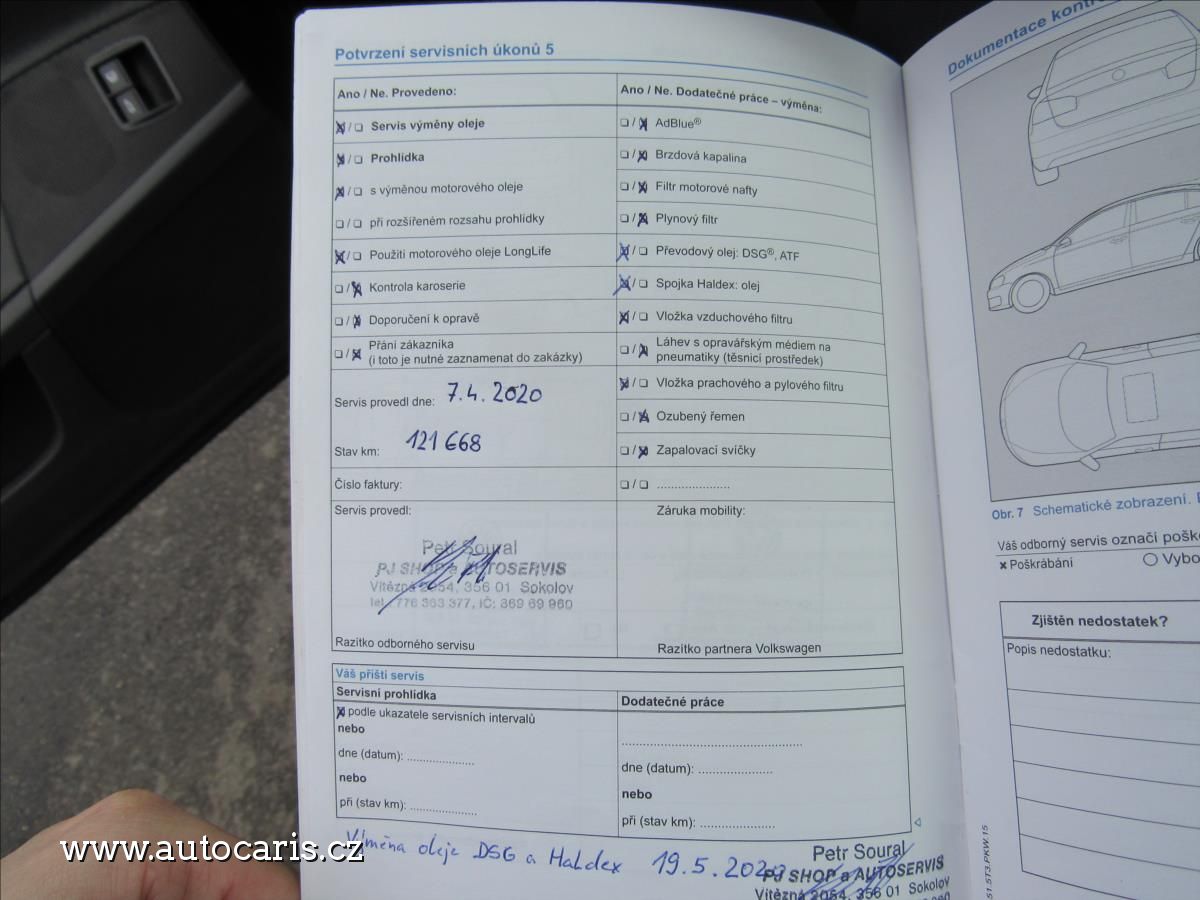 Potvrzení servisních úkonů 5
Ano / Ne. Provedeno:
Servis výměny oleje
Prohlídka
s výměnou motorového oleje
při rozšířeném rozsahu prohlídky
Použití motorového oleje LongLife
Kontrola karoserie
Doporučení k opravě
Přání zákazníka
(i toto je nutné zaznamenat do zakázky)
Servis provedl dne: 7.4.2020
Stav km: 121 668
Číslo faktury:
Servis provedl:
Petr Soural
PJ SHOP a AUTOSERVIS
Vítězná 2054, 356 01 Sokolov
tel.: 776 363 377, IČ: 369 69 960
Razítko odborného servisu
Ano / Ne. Dodatečné práce – výměna:
AdBlue®
Brzdová kapalina
Filtr motorové nafty
Plynový filtr
Převodový olej: DSG®, ATF
Spojka Haldex: olej
Vložka vzduchového filtru
Láhev s opravářským médiem na
pneumatiky (těsnicí prostředek)
Vložka prachového a pylového filtru
Ozubený řemen
Zapalovací svíčky
....................
Záruka mobility:
Razítko partnera Volkswagen
Váš příští servis
Servisní prohlídka
podle ukazatele servisních intervalů
nebo
dne (datum): ....................
nebo
při (stav km): ....................
Dodatečné práce
..................................................
dne (datum): ......................
nebo
při (stav km): ......................
Výměna oleje DSG a HaLdex 19.5.2020
Petr Soural
PJ SHOP a AUTOSERVIS
Vítězná 2054, 356 01 Sokolov
Dokumentace kontro
Obr. 7 Schematické zobrazení.
Váš odborný servis označí poško
× Poškrábání
Vybo
Zjištěn nedostatek?
Popis nedostatku:
51.5T3.PKW.15
www.autocaris.cz